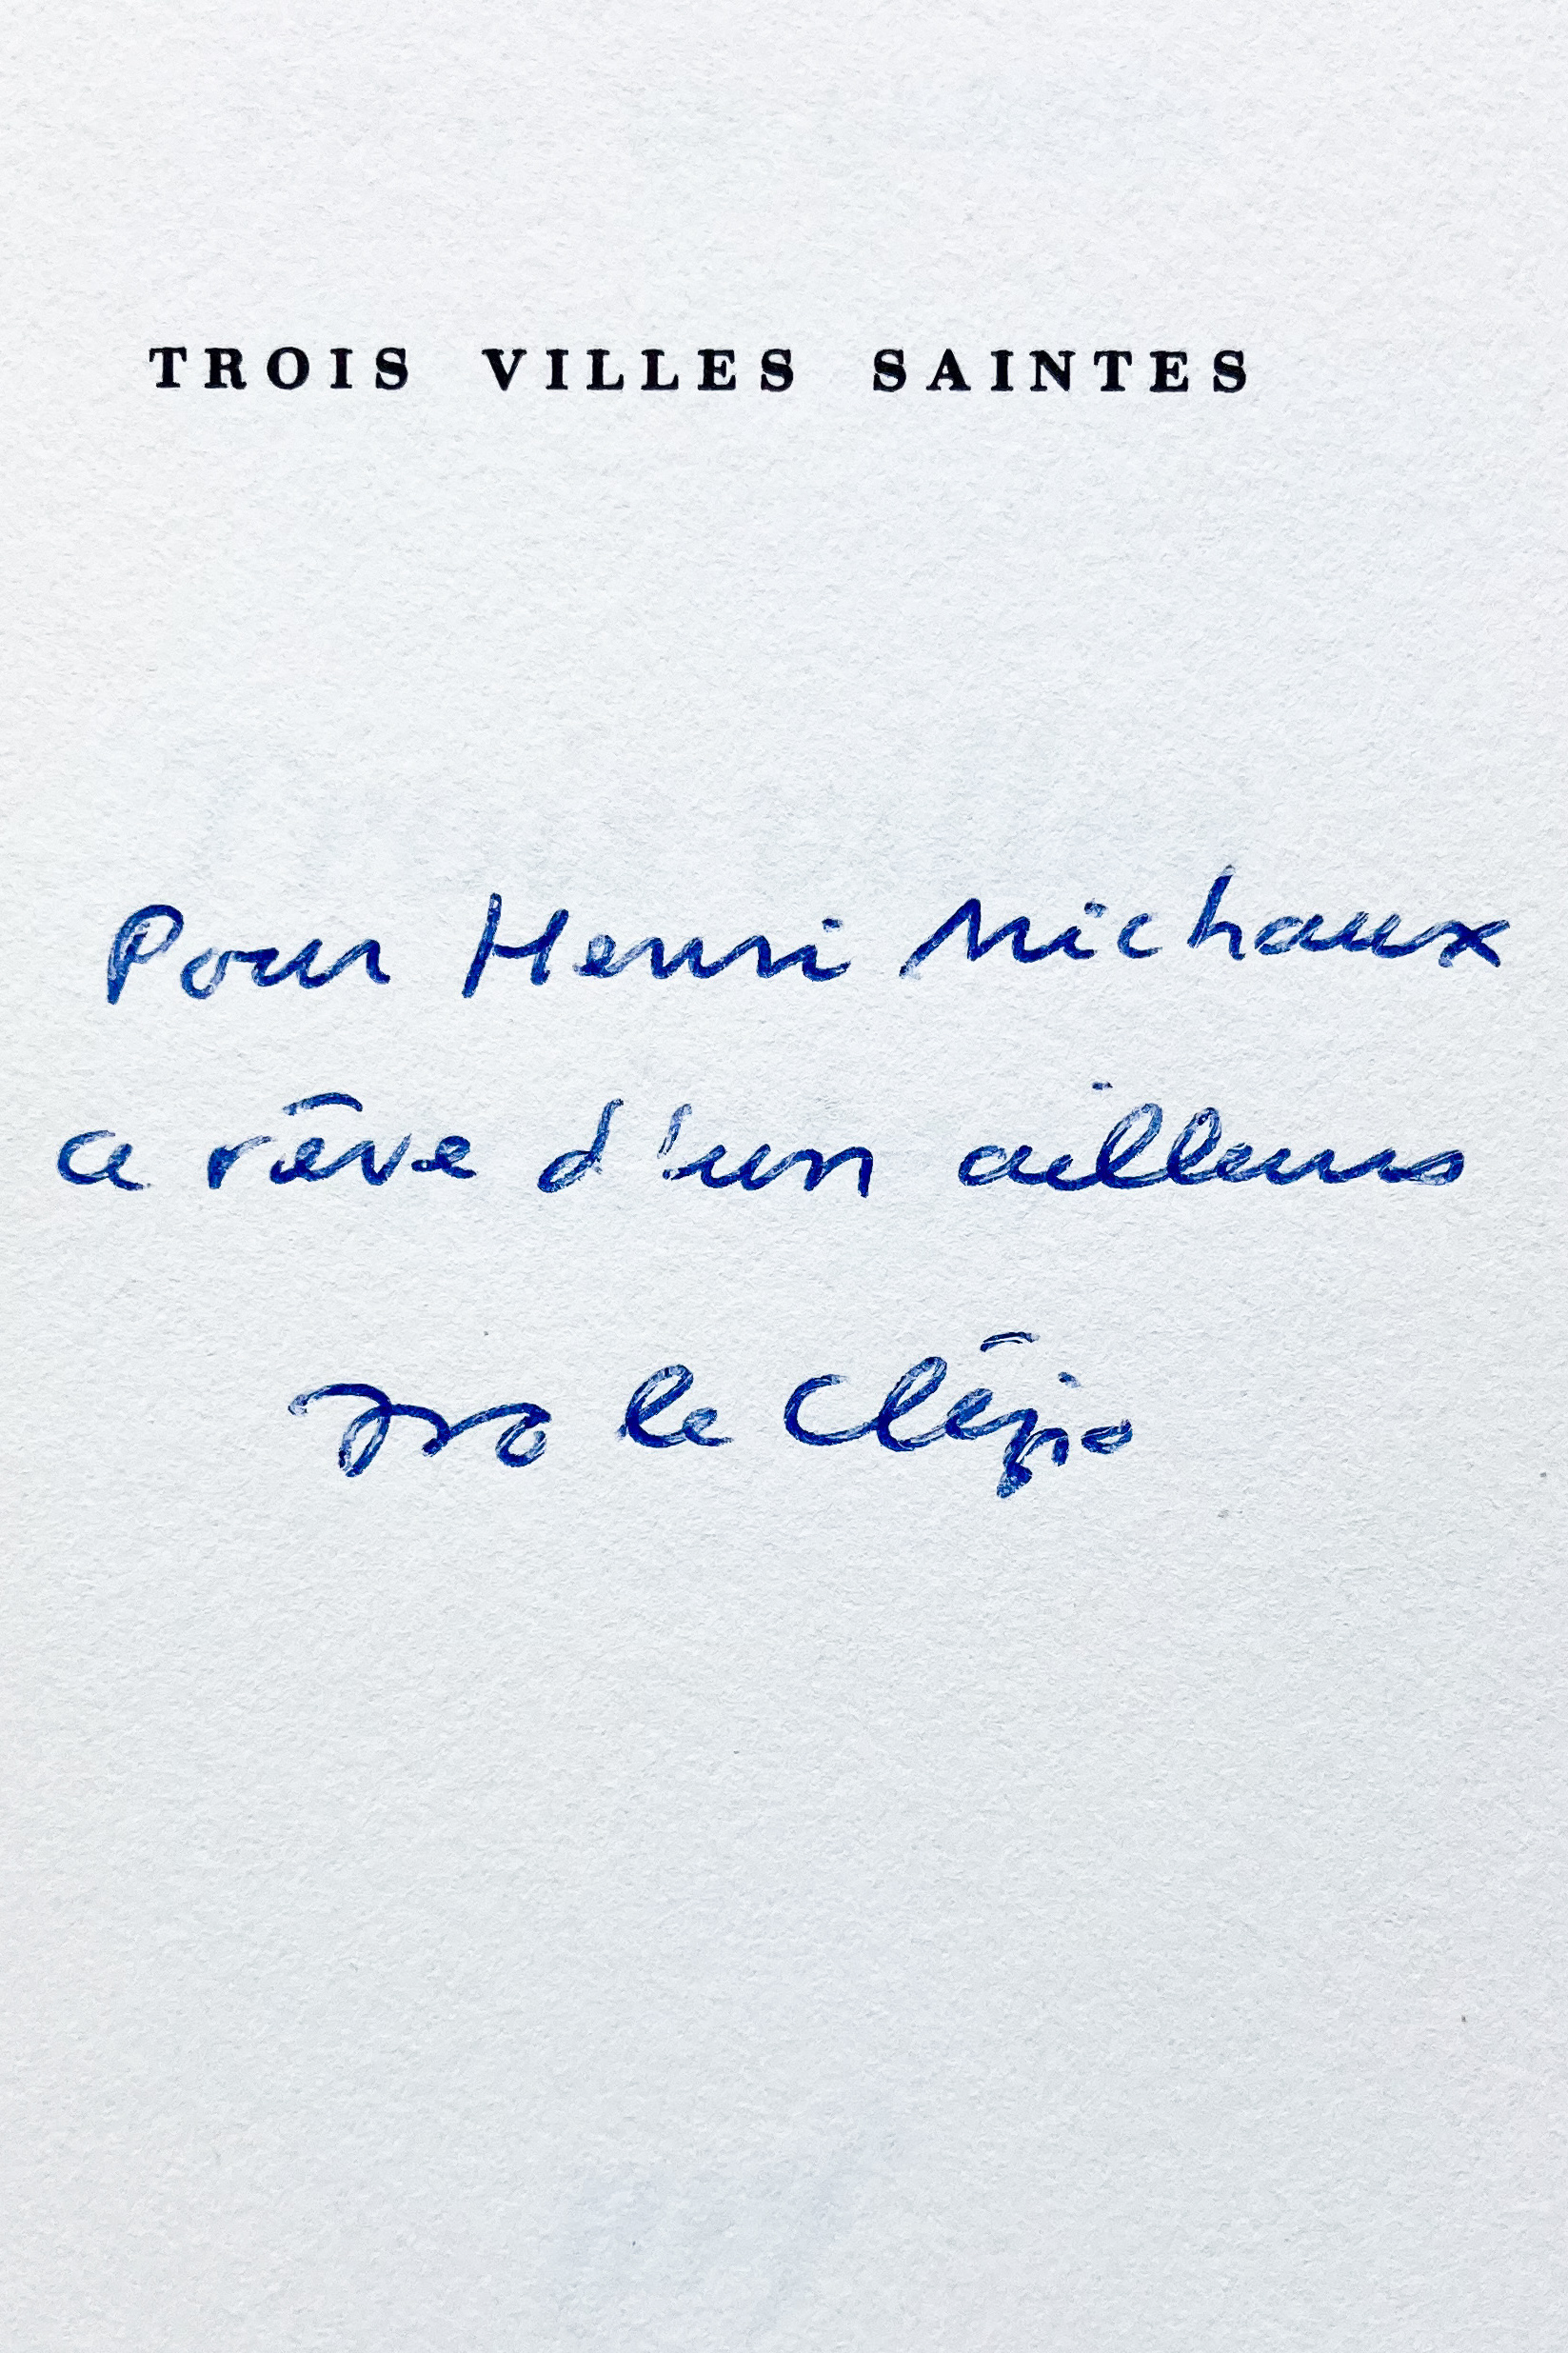 TROIS VILLES SAINTES
Pour Henri Michaux
ce rêve d'un ailleurs
JMG Le Clézio